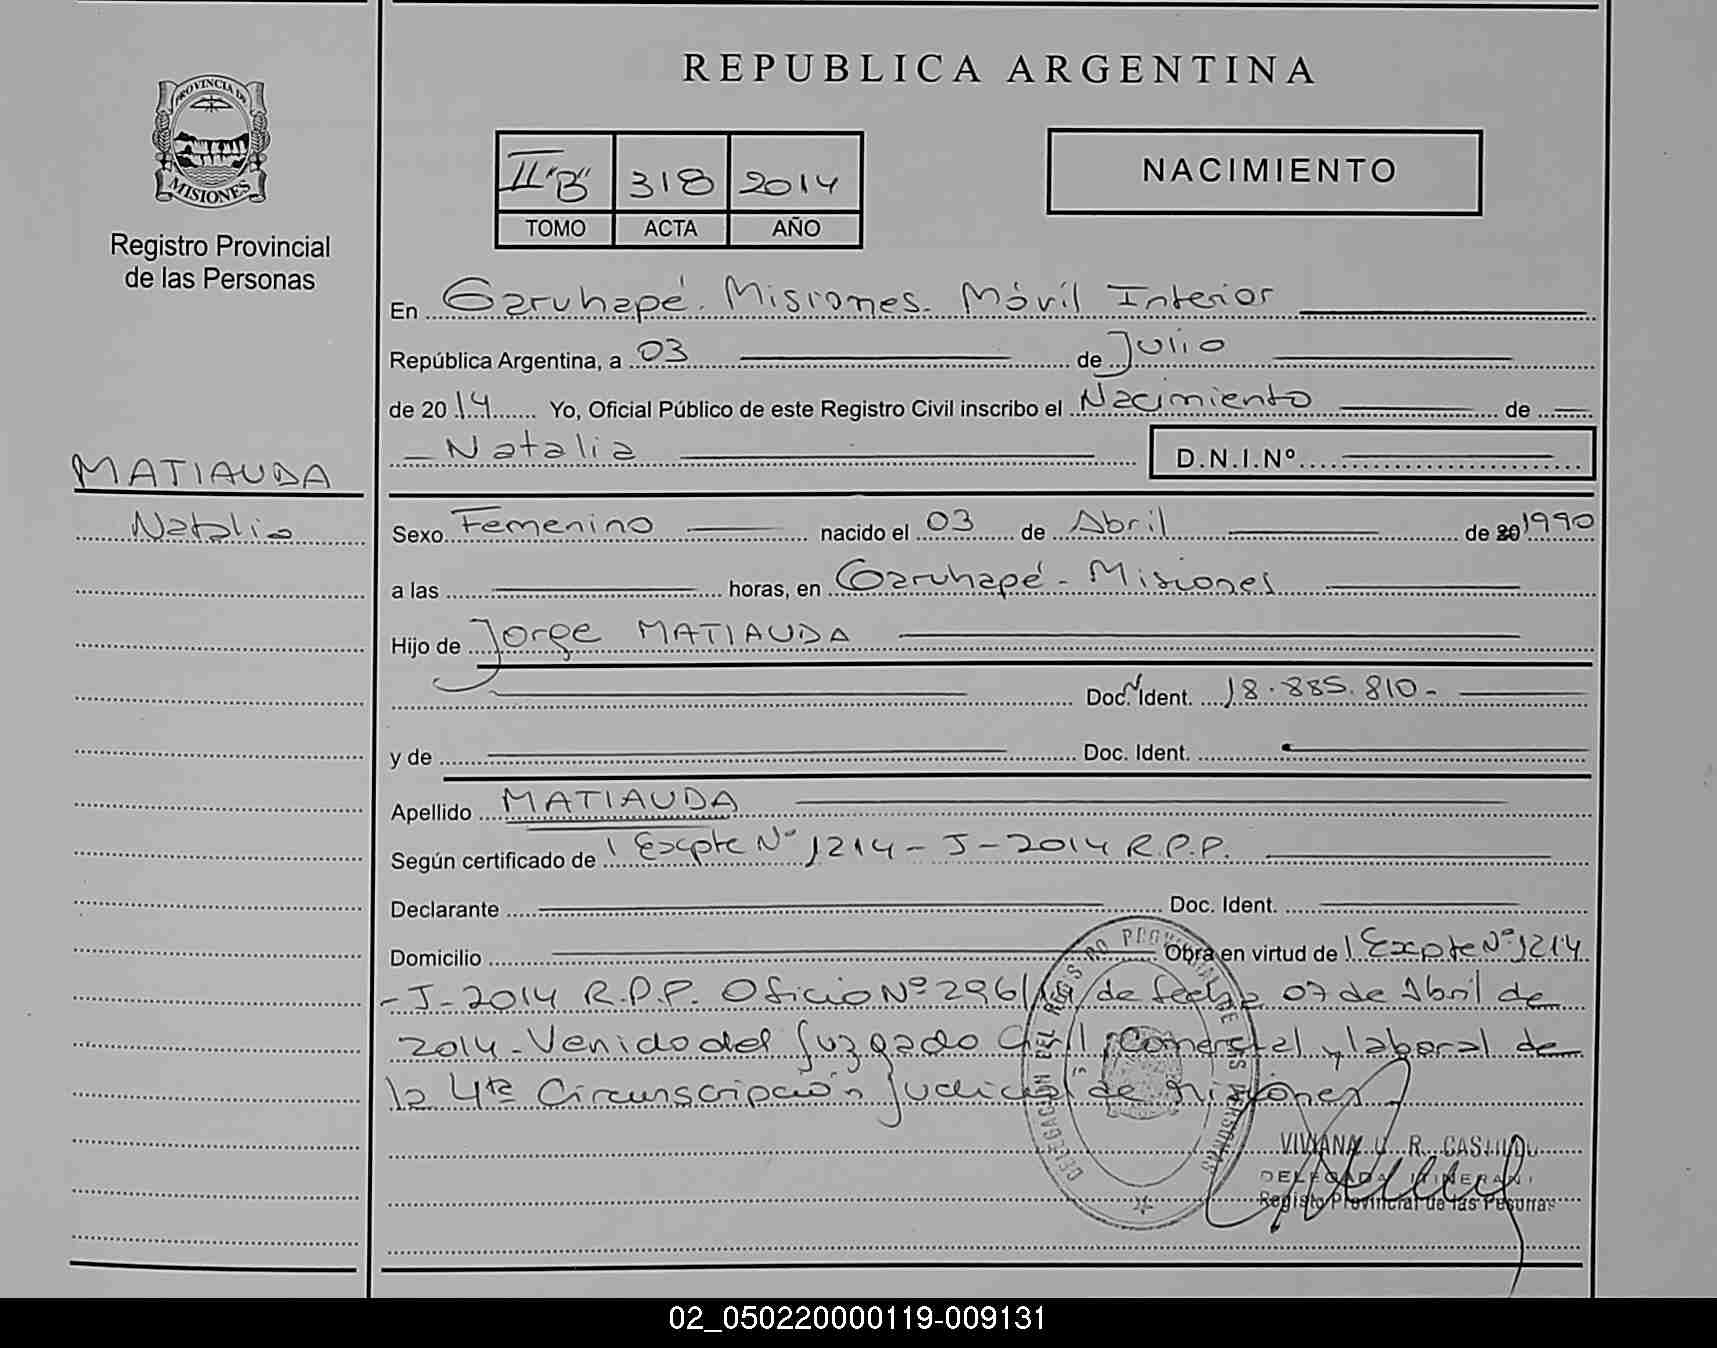 REPUBLICA ARGENTINA
PROVINCIA DE
MISIONES
Registro Provincial
de las Personas
II "B" 318 2014
TOMO ACTA AÑO
NACIMIENTO
En Garuhapé. Misiones. Móvil Interior
República Argentina, a 03 de Julio
de 2014 Yo, Oficial Público de este Registro Civil inscribo el Nacimiento de
Natalia D.N.I.Nº
MATIAUDA
Natalia
Sexo Femenino nacido el 03 de Abril de 20 1990
a las horas, en Garuhapé - Misiones
Hijo de Jorge MATIAUDA
Doc. Ident. 18.885.810-
y de Doc. Ident.
Apellido MATIAUDA
Según certificado de Expte Nº 1214 - J - 2014 R.P.P.
Declarante Doc. Ident.
Domicilio Obra en virtud de Expte Nº 1214
- J - 2014 R.P.P. Oficio Nº 296/14 de fecha 07 de Abril de
2014 - Venido del Juzgado Civil, Comercial y laboral de
la 4ta Circunscripción judicial de Misiones.
DELEGACION DEL REGISTRO PROVINCIAL DE LAS PERSONAS
VIVIANA U. R.
DELEGADA
Registro Provincial de las Personas
02_050220000119-009131